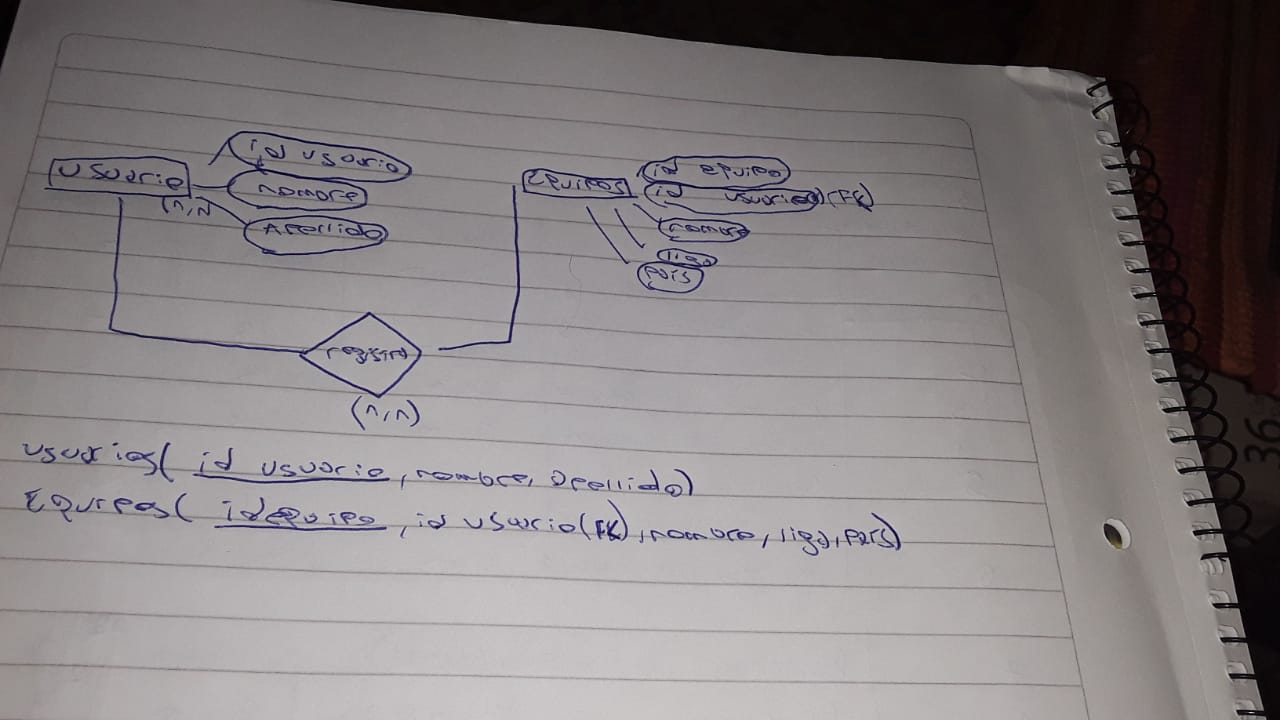 usuario
id usuario
nombre
(n,N)
Apellido
Equipos
id equipo
id usuario (FK)
nombre
liga
país
registra
(n,n)
usuarios( id usuario, nombre, apellido)
Equipos( id equipo, id usuario(FK), nombre, liga, país)
36